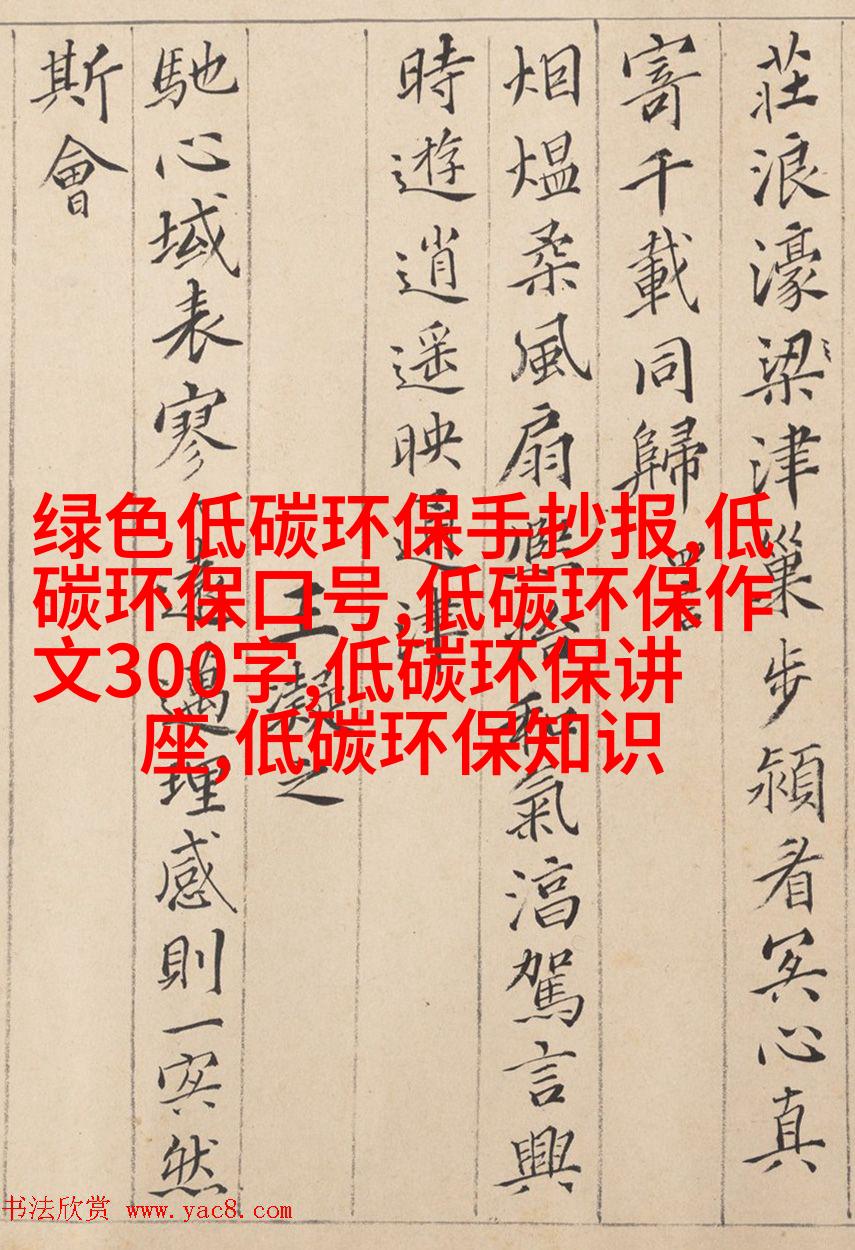 莊浪濠梁津巢步潁看冥心真
寄千載同歸
烟熅柔風扇 和氣淯駕言興
時遊逍遥映通津
王凝之
馳心域表寥遠邁理感則一冥然
斯會
绿色低碳环保手抄报,低
碳环保口号,低碳环保作
文300字,低碳环保讲
座,低碳环保知识
书法欣赏 www.yac8.com